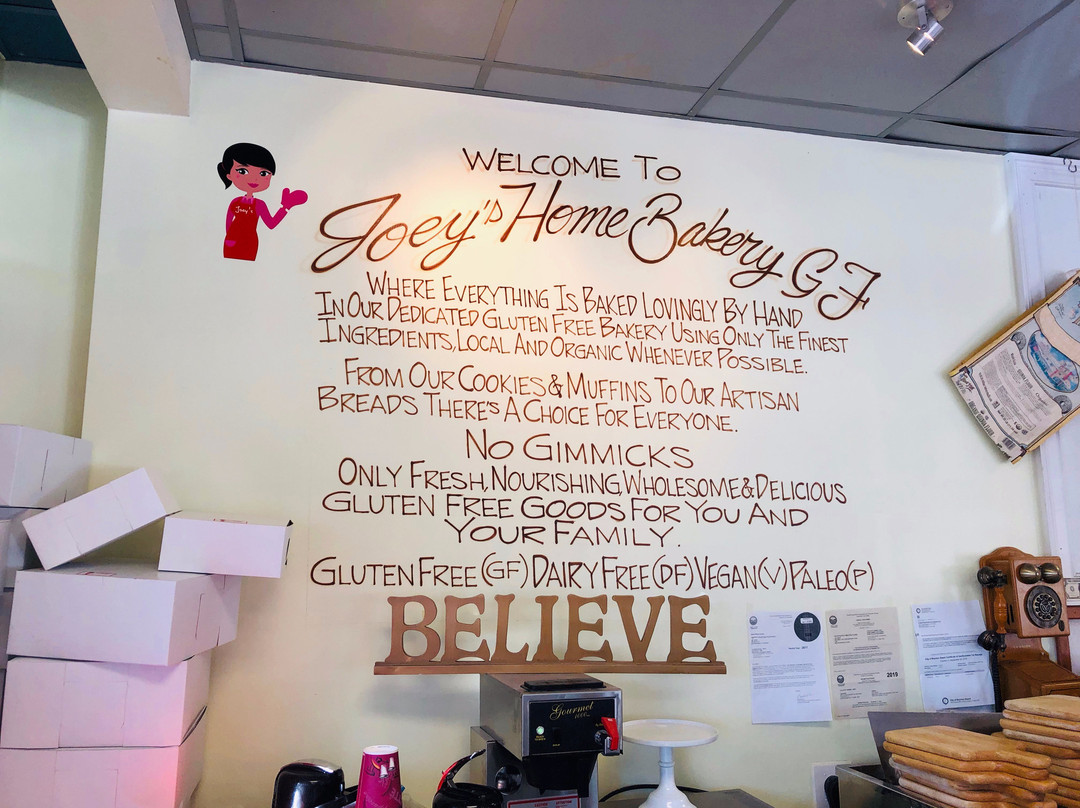 WELCOME TO
Joey's Home Bakery GF
WHERE EVERYTHING IS BAKED LOVINGLY BY HAND
IN OUR DEDICATED GLUTEN FREE BAKERY USING ONLY THE FINEST
INGREDIENTS, LOCAL AND ORGANIC WHENEVER POSSIBLE.
FROM OUR COOKIES & MUFFINS TO OUR ARTISAN
BREADS THERE'S A CHOICE FOR EVERYONE.
NO GIMMICKS
ONLY FRESH, NOURISHING, WHOLESOME & DELICIOUS
GLUTEN FREE GOODS FOR YOU AND
YOUR FAMILY.
GLUTEN FREE (GF) DAIRY FREE (DF) VEGAN (V) PALEO (P)
BELIEVE
Joey's
Gourmet
1000
2019